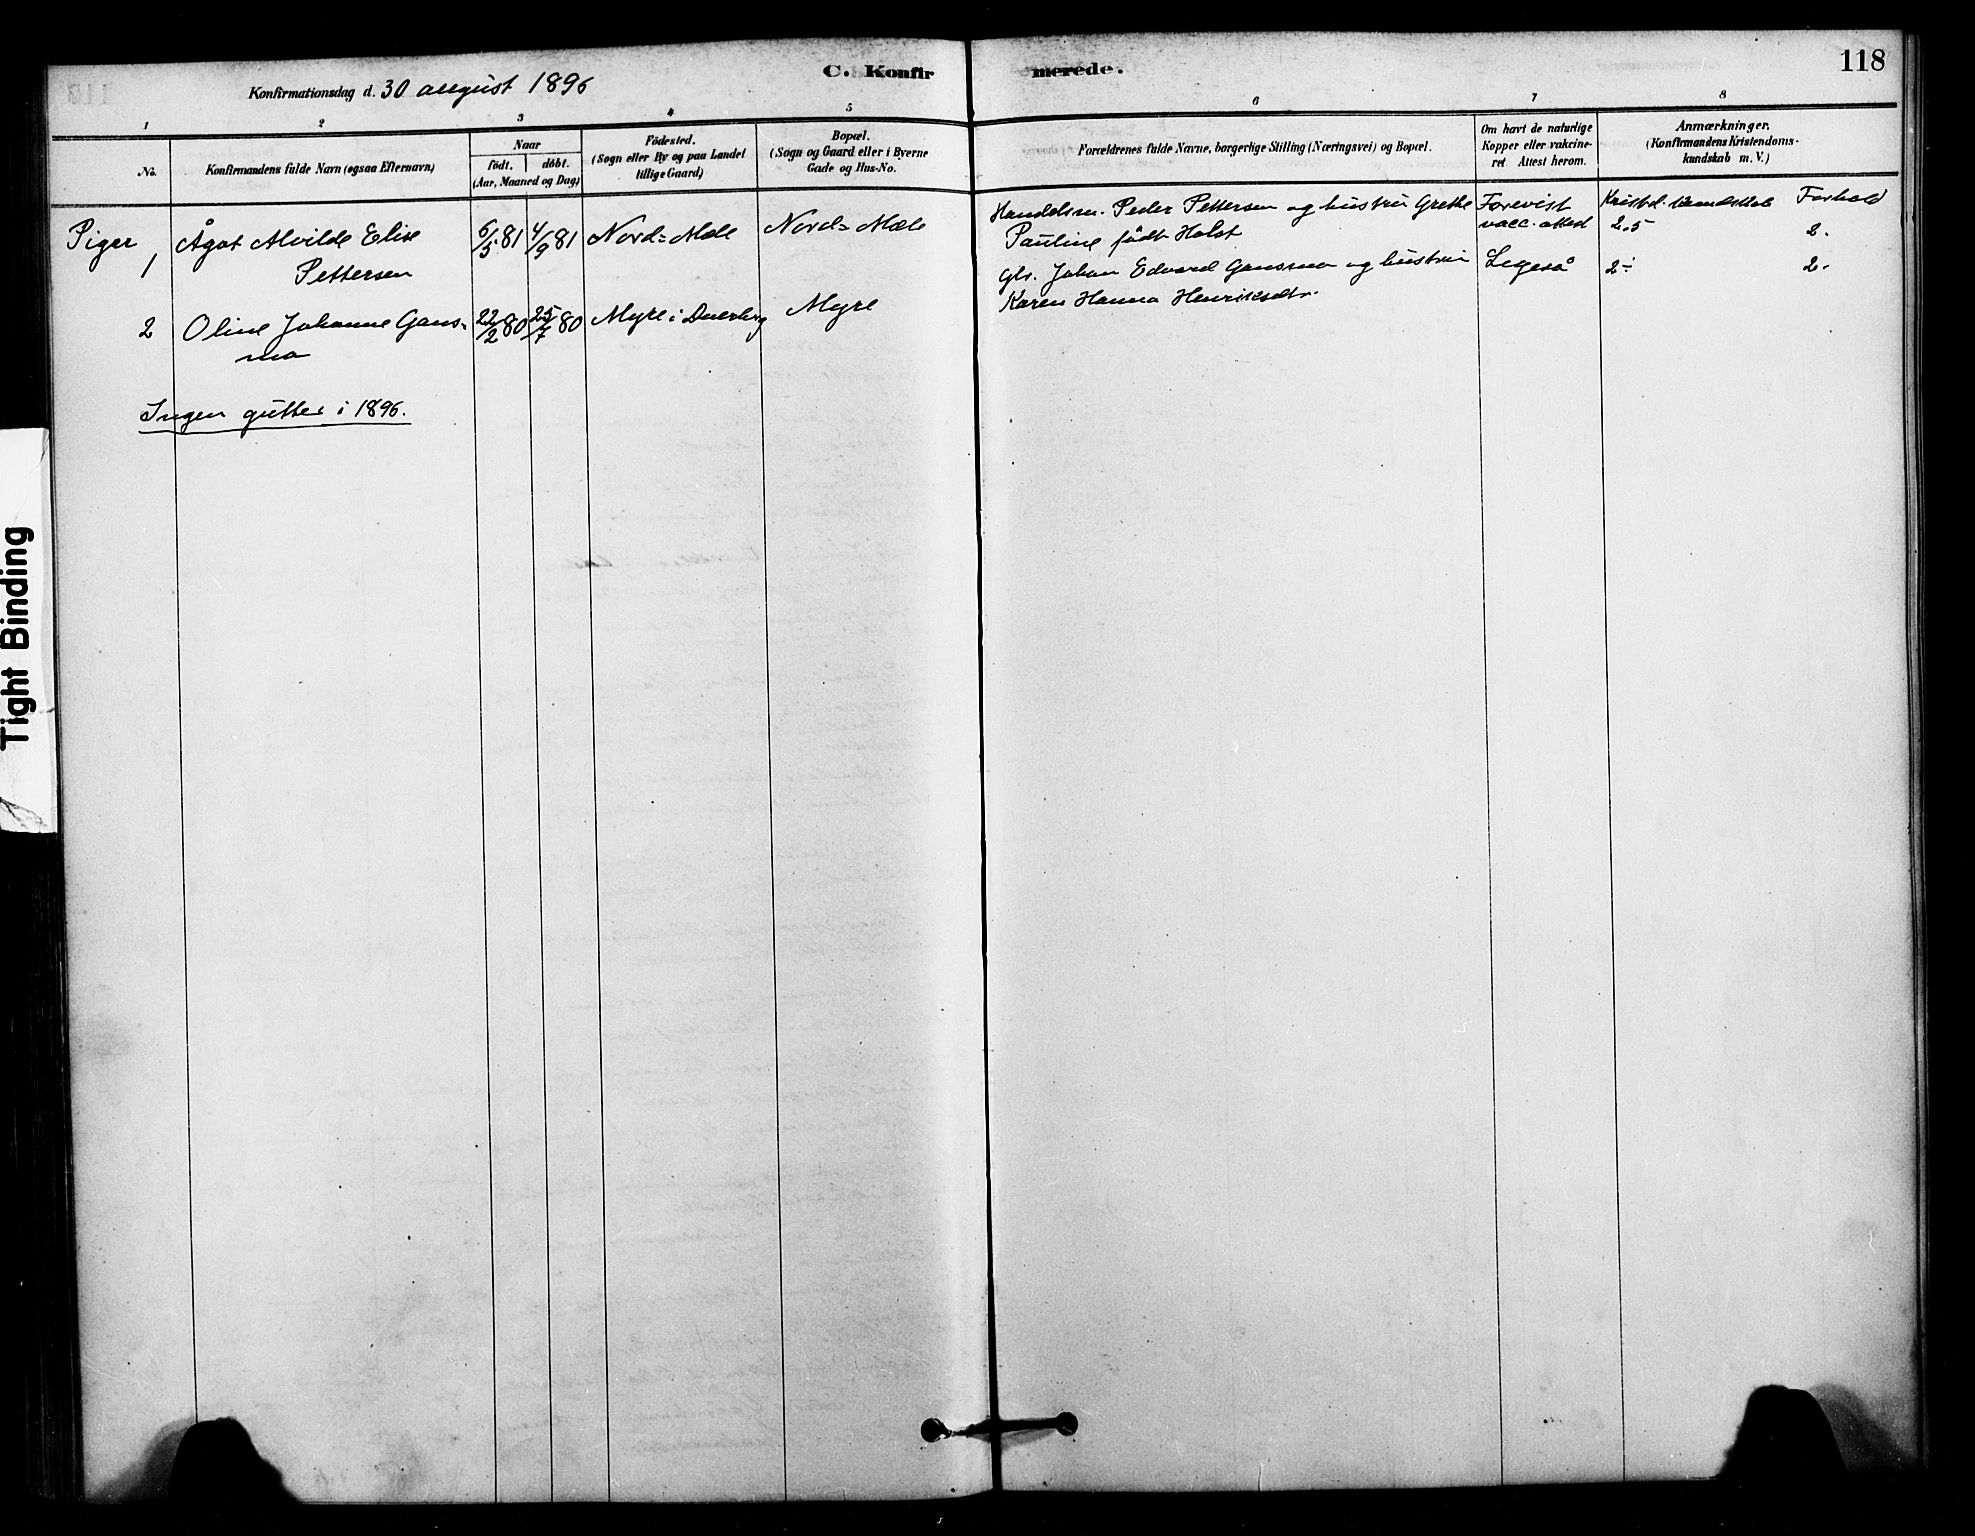 C. Konfirmerede.
118
Konfirmationsdag d. 30 august 1896
1 2 3 4 5 6 7 8
No.
Konfirmandens fulde Navn (ogsaa Efternavn)
Naar
födt. döbt.
(Aar, Maaned og Dag)
Födested.
(Sogn eller By og paa Landet
tillige Gaard)
Bopæl.
(Sogn og Gaard eller i Byerne
Gade og Hus-No.
Forældrenes fulde Navne, borgerlige Stilling (Næringsvei) og Bopæl.
Om havt de naturlige
Kopper eller vakcine-
ret. Attest herom.
Anmærkninger.
(Konfirmandens Kristendoms-
kundskab m. V.)
Piger
1 Ågot Alvilde Elise
Pettersen
6/5 81 4/9 81 Nord-Mæle Nord-Mæle
Handelsm. Peder Pettersen og hustru Grethe
Pauline født Holst
Forevist
vacc. attest
Kristd. kundskab Forhold
2.5 2.
2 Oline Johanne Gans-
mo
22/2 80 25/7 80 Myre i Dverberg Myre
Gbr. Johan Edvard Gansmo og hustru
Karen Hanna Henriksdtr.
Ligeså
2÷ 2.
Ingen gutter i 1896.
Tight Binding